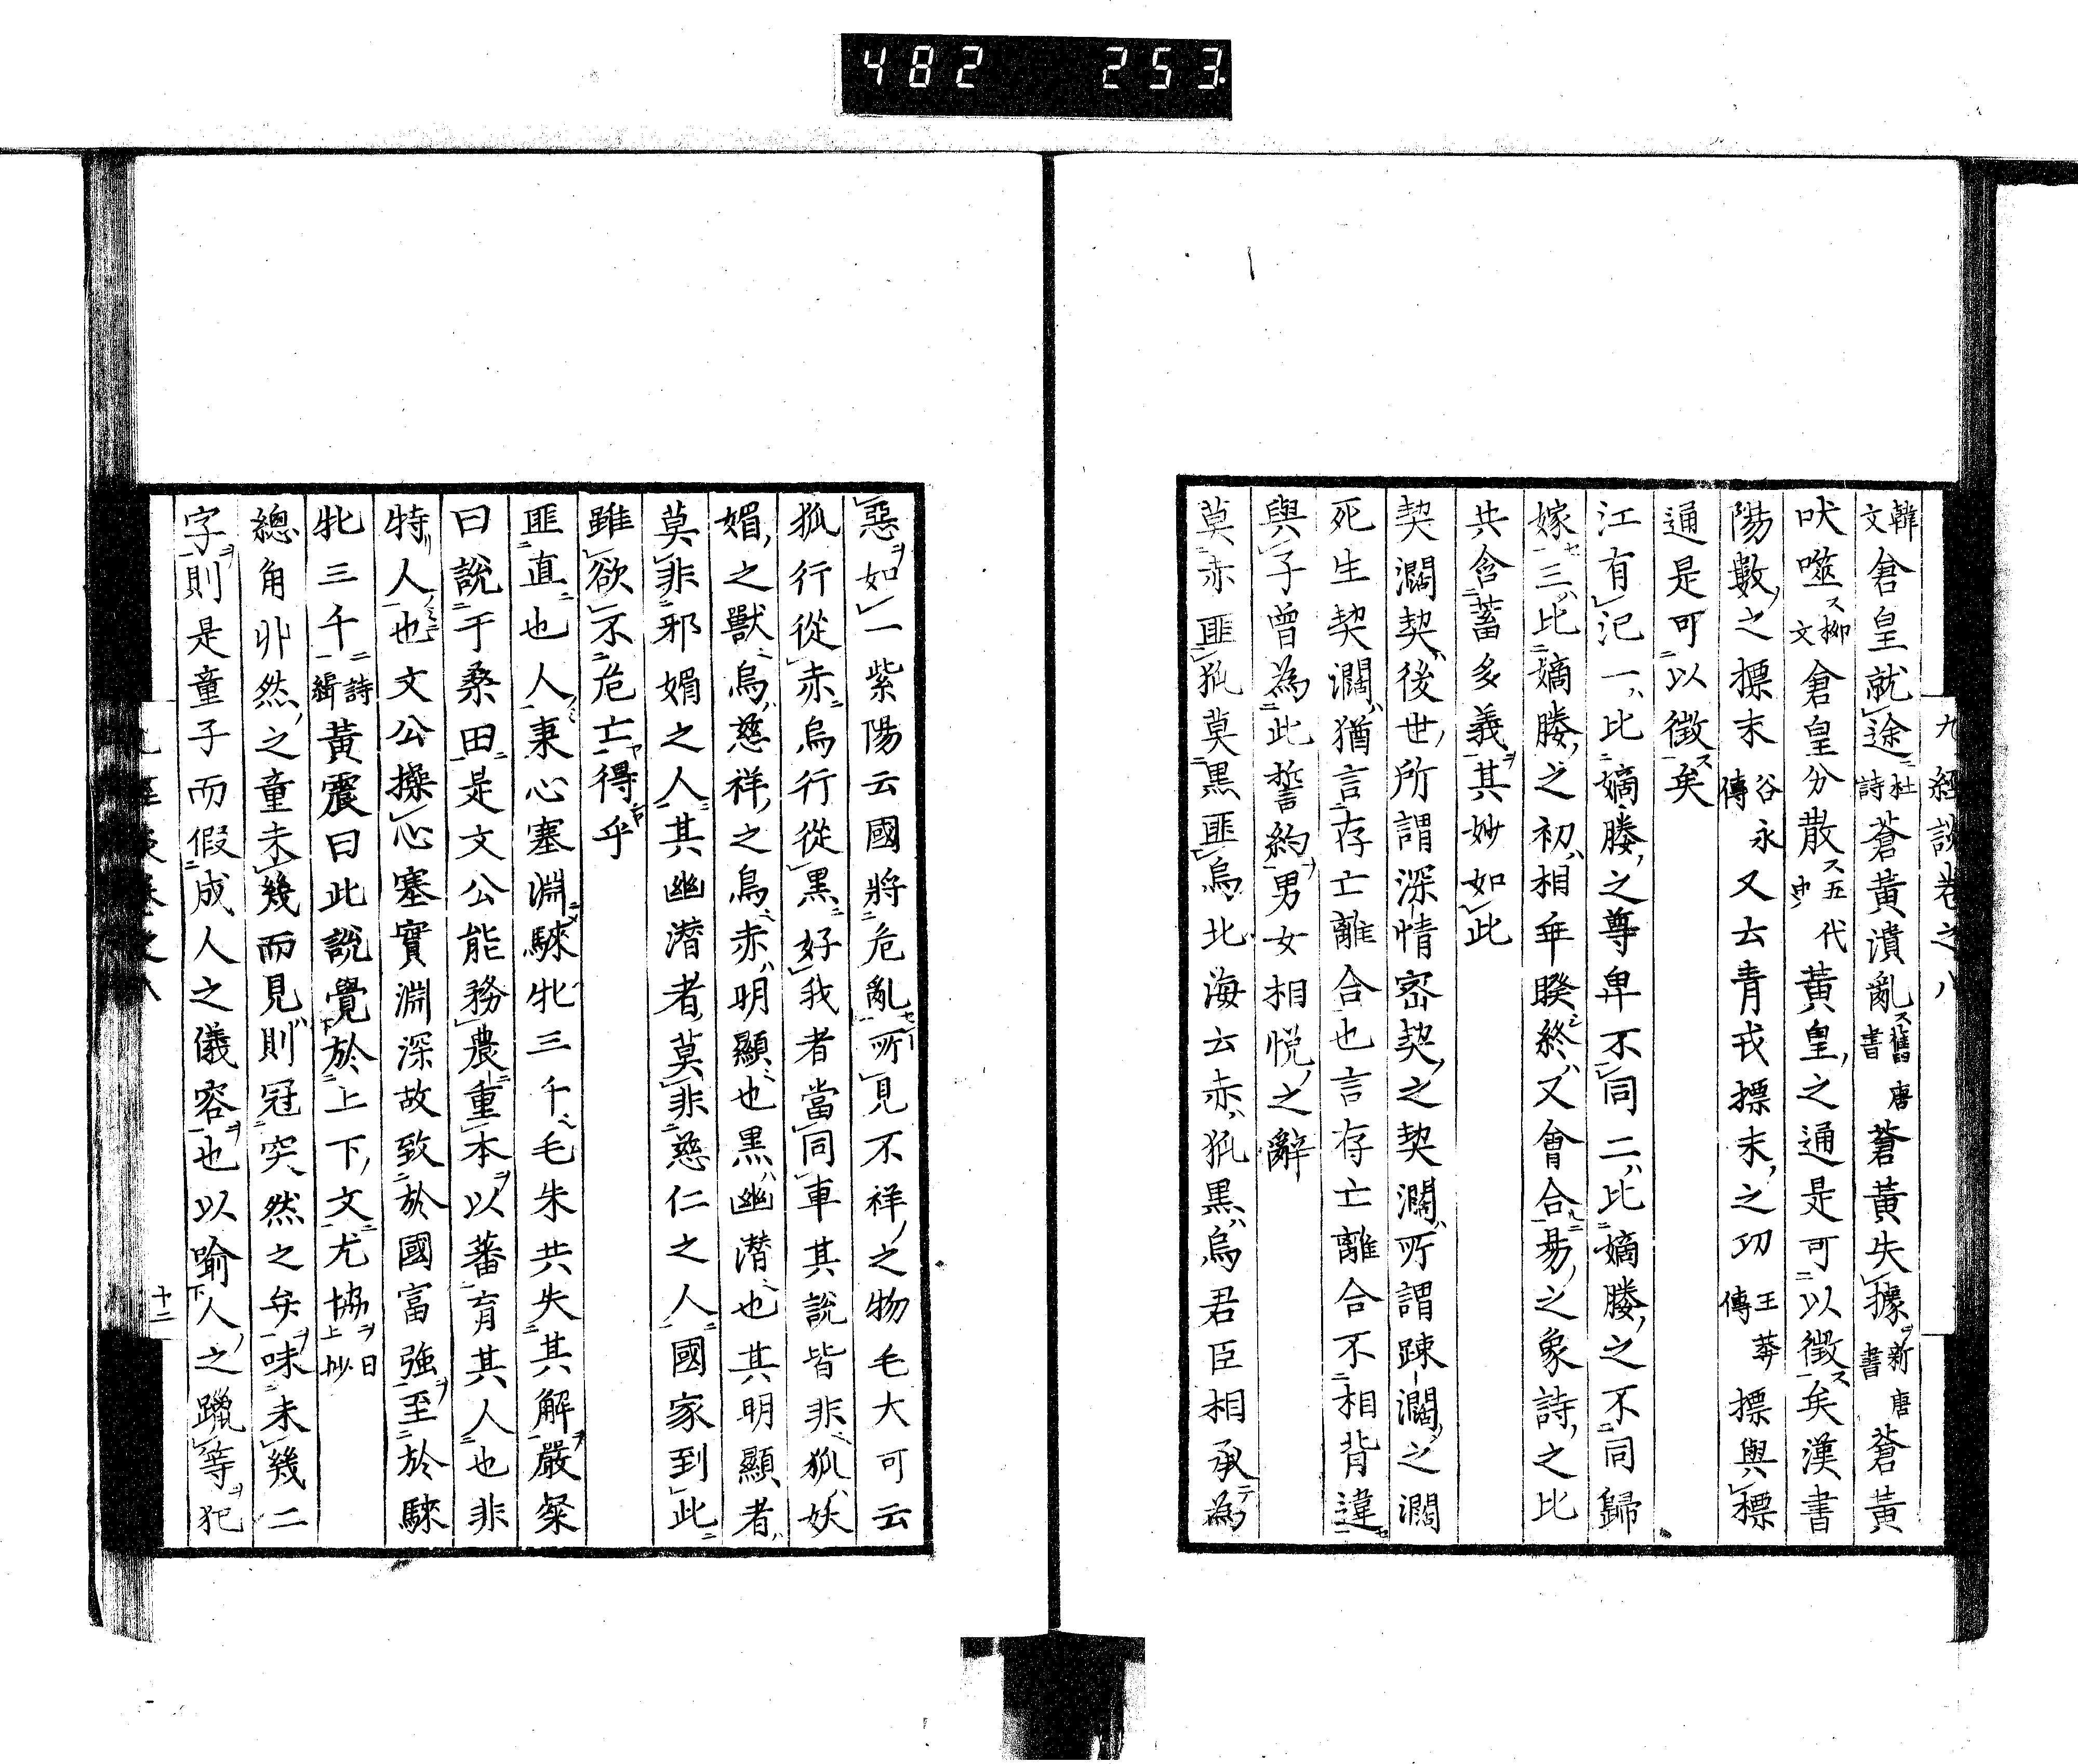 482 253
九經談卷之八
韓文倉皇就途杜詩蒼黃潰亂舊唐書蒼黃失據新唐書蒼黃
吠噬柳文倉皇分散五代史黃皇之通是可以徵矣漢書
陽數之摽末谷永傳又云青戎摽末之功王莽傳摽與標
通是可以徵矣
江有汜一比嫡媵之尊卑不同二比嫡媵之不同歸
嫁三比嫡媵之初相乖暌終又會合易之象詩之比
共含蓄多義其妙如此
契濶契後世所謂深情密契之契濶所謂踈濶之濶
死生契濶猶言存亡離合也言存亡離合不相背違
與子曾為此誓約男女相悅之辭
莫赤匪狐莫黑匪烏北海云赤狐黑烏君臣相承為
惡如一紫陽云國將危亂所見不祥之物毛大可云
狐行從赤烏行從黑好我者當同車其說皆非狐妖
媚之獸烏慈祥之鳥赤明顯也黑幽潜也其明顯者
莫非邪媚之人其幽潜者莫非慈仁之人國家到此
雖欲不危亡得乎
匪直也人秉心塞淵騋牝三千毛朱共失其解嚴粲
曰說于桑田是文公能務農重本以蕃育其人也非
特人也文公操心塞實淵深故致於國富強至於騋
牝三千詩緝黃震曰此說覺於上下文尤協日抄
總角丱然之童未幾而見則冠突然之弁味未幾二
字則是童子而假成人之儀容也以喻人之躐等犯
十二